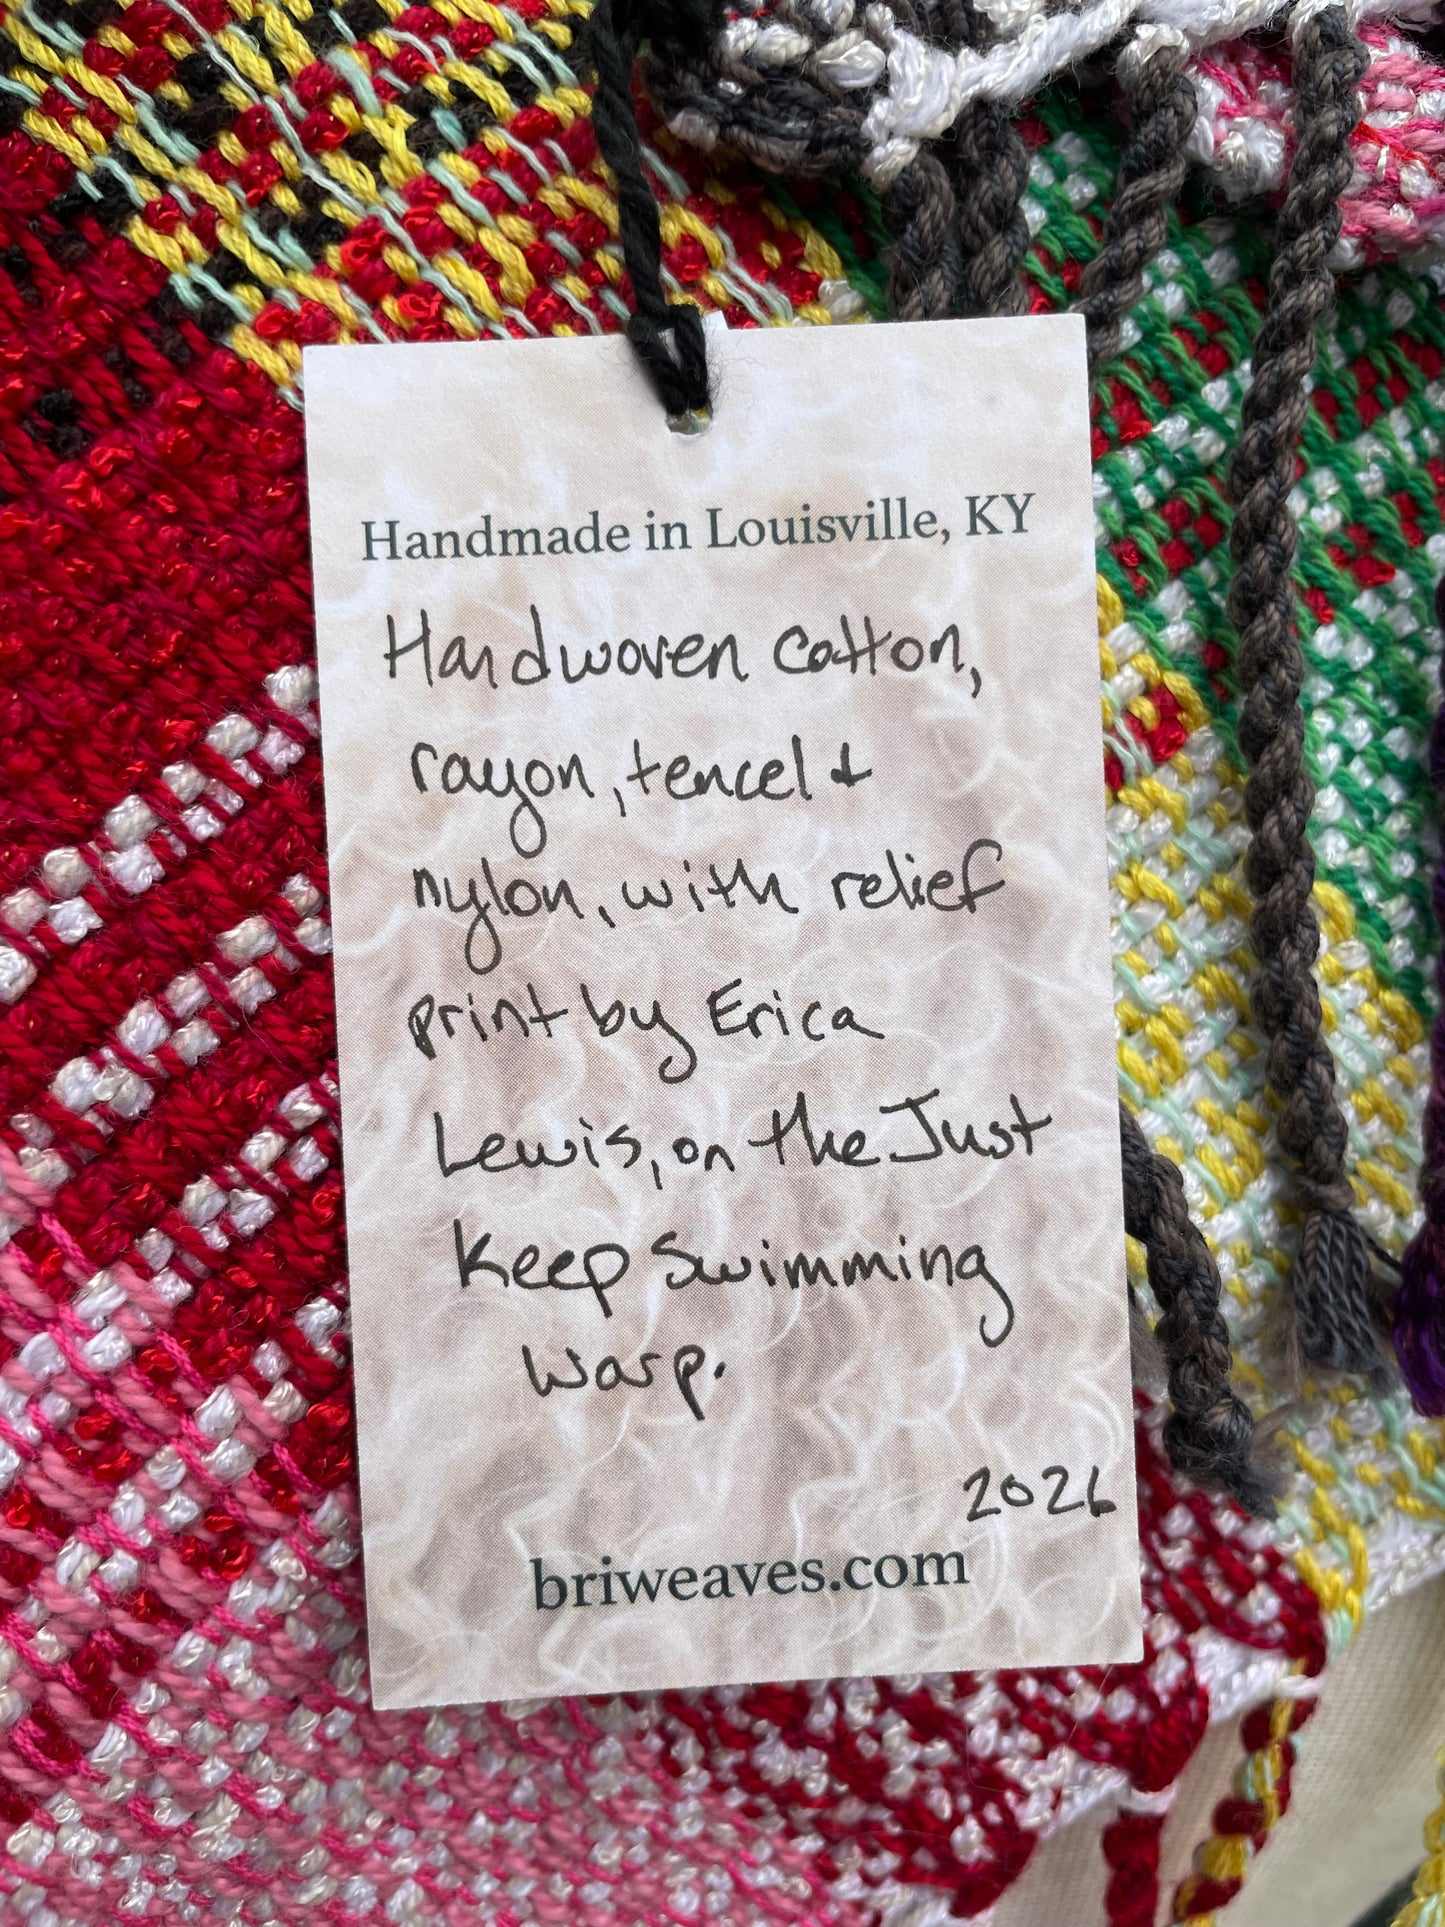 Handmade in Louisville, KY
Handwoven cotton,
rayon, tencel &
nylon, with relief
print by Erica
Lewis, on the Just
Keep Swimming
Warp.
2026
briweaves.com